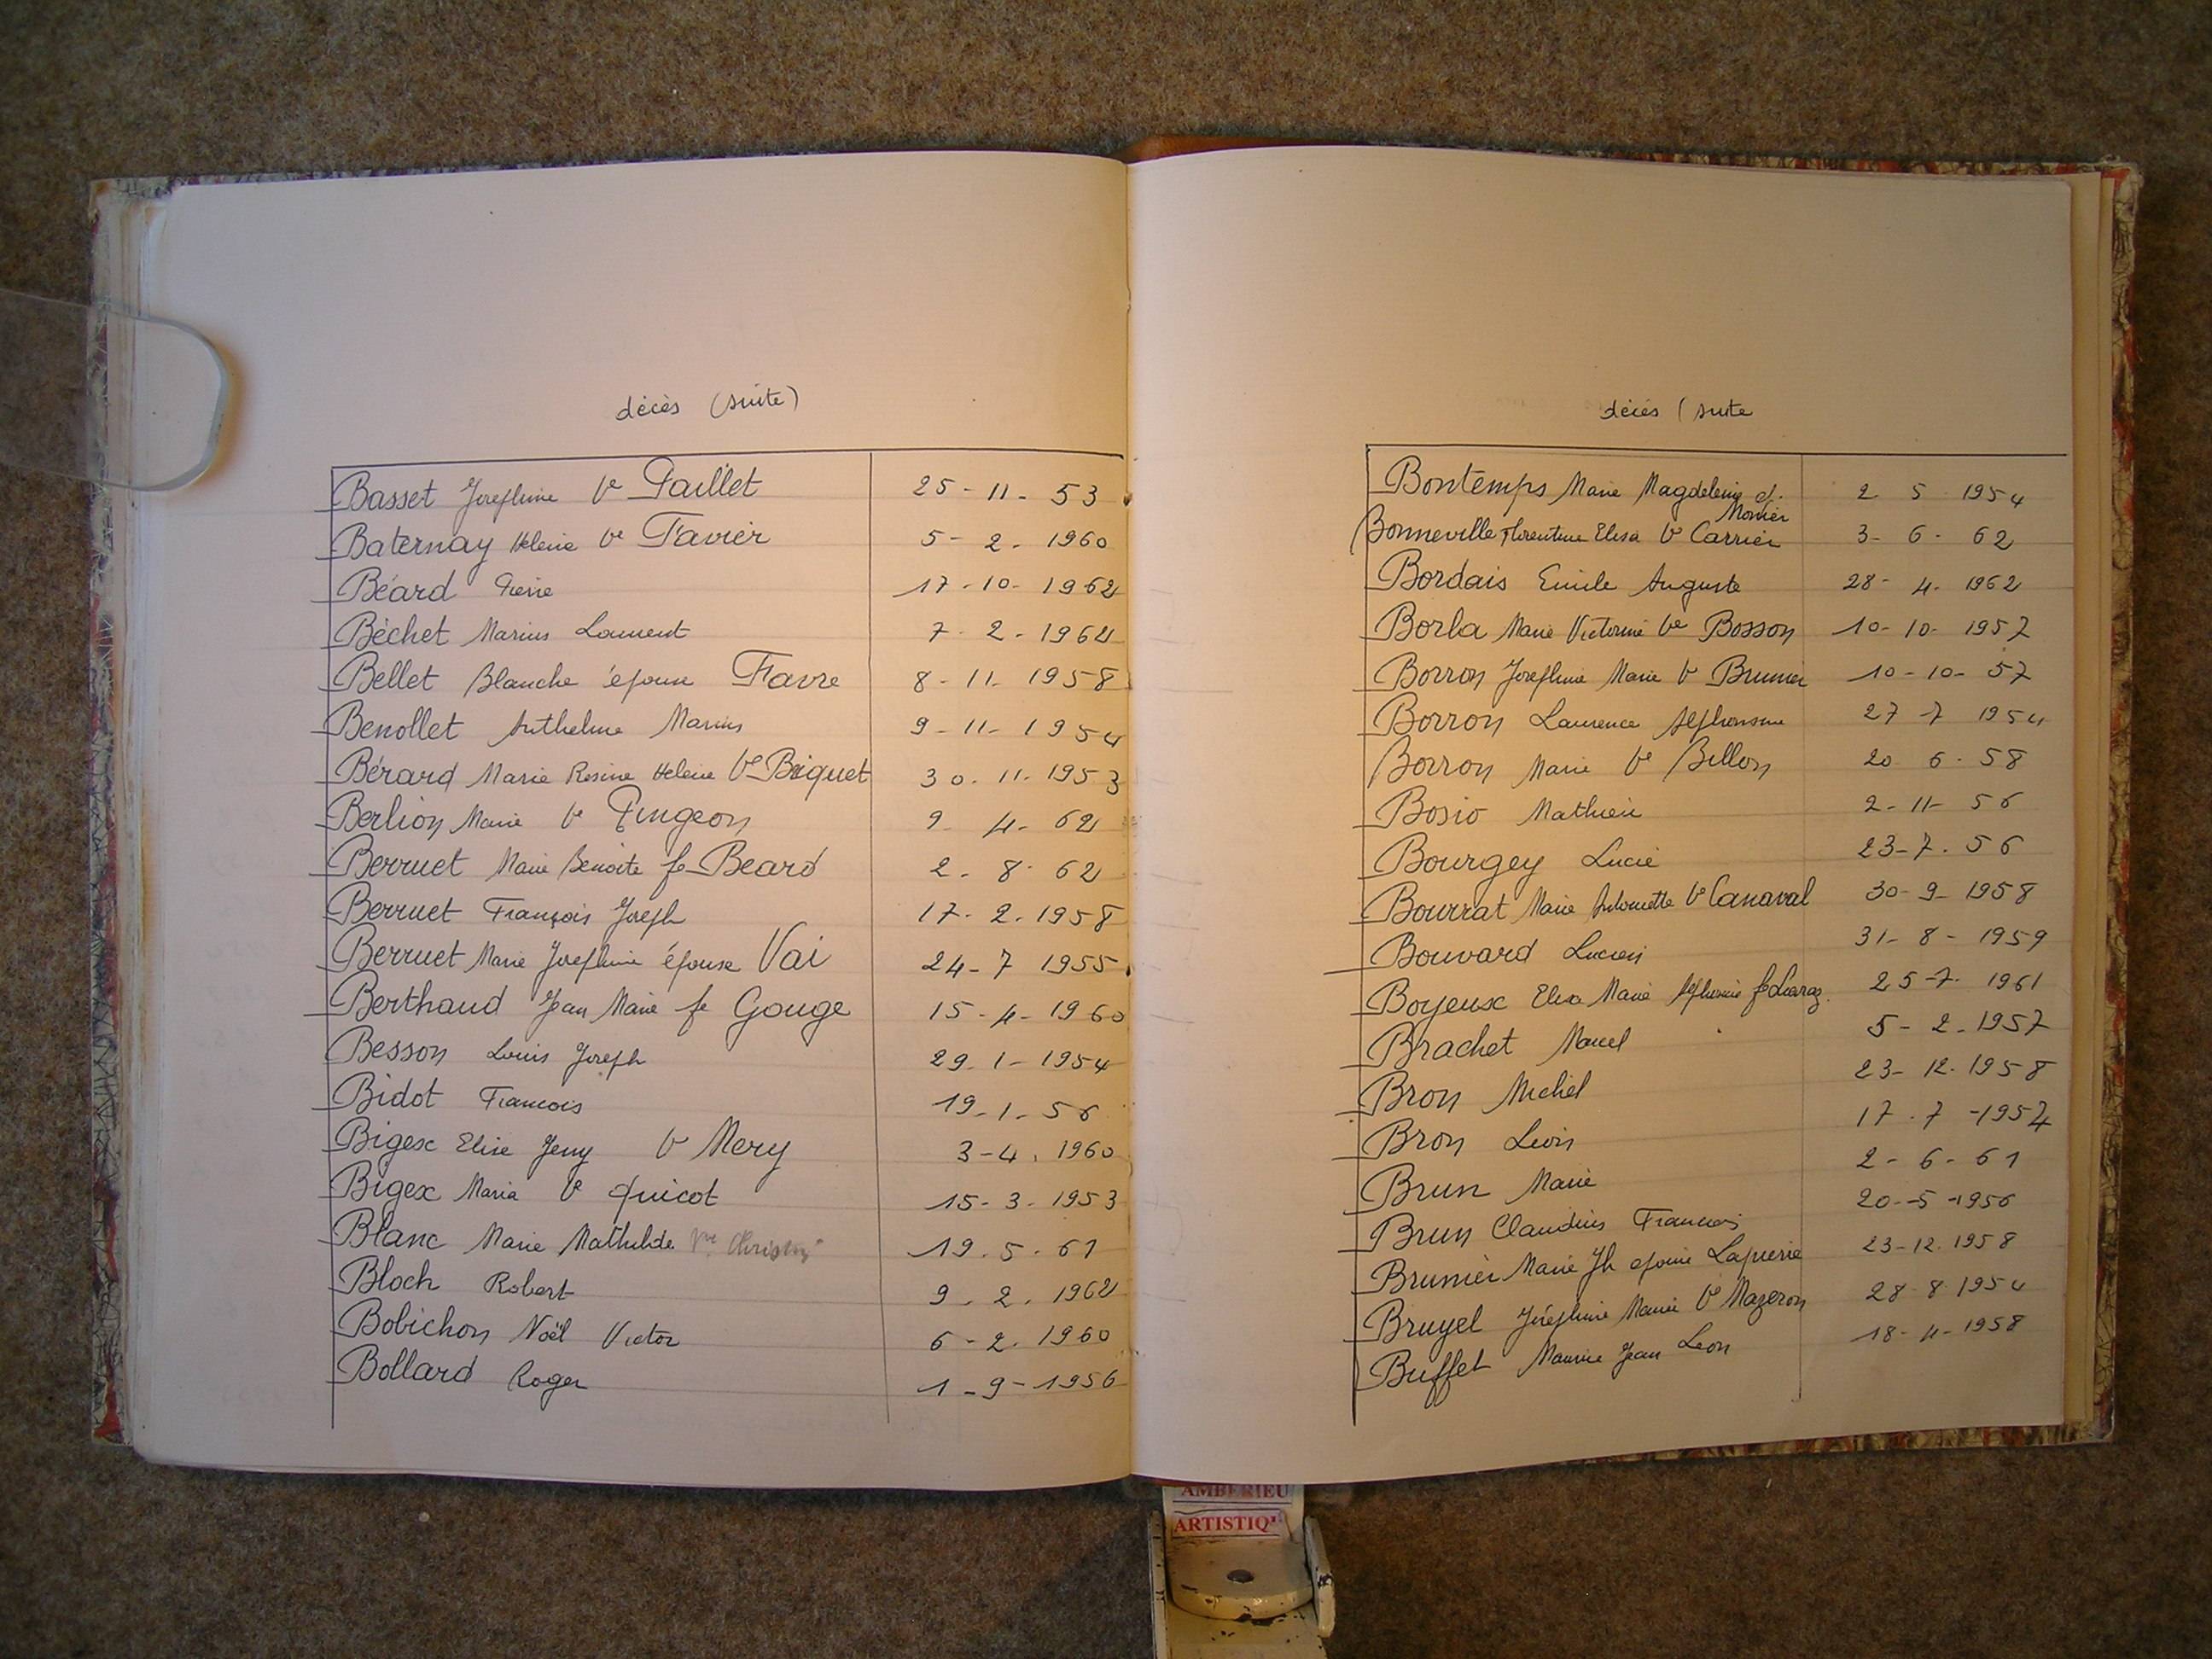 décès (suite)
Basset Josephine Ve Paillet 25-11-53
Baternay Helene Ve Favier 5-2-1960
Béard Pierre 17-10-1962
Béchet Marius Laurent 7-2-1962
Bellet Blanche épouse Favre 8-11-1958
Benollet Anthelme Marius 9-11-1954
Bérard Marie Rosine Helene Ve Briquet 30-11-1953
Berlion Marie Ve Pingeon 9-4-62
Berruet Marie Benoite fe Beard 2-8-62
Berruet François Joseph 17-2-1958
Berruet Marie Josephine épouse Vai 24-7 1955
Berthaud Jean Marie fe Gouge 15-4-1960
Besson Louis Joseph 29-1-1954
Bidot Francois 19-1-56
Bigex Elise Jeny Ve Mery 3-4.1960
Bigex Maria Ve Quicot 15-3-1953
Blanc Marie Mathilde Vve 19.5.61
Bloch Robert 9.2.1962
Bobichon Noël Victor 6-2.1960
Bollard Roger 1-9-1956
décès (suite
Bontemps Marie Magdeleine ep. 2 5 1954
Monier
Bonneville Florentine Elisa Ve Carrier 3-6-62
Bordais Emile Auguste 28-4-1962
Borla Marie Victorine Ve Bosson 10-10-1957
Borron Josephine Marie Ve Brunier 10-10-57
Borron Laurence Alphonsine 27-7 1954
Borron Marie Ve Billon 20 6-58
Bosio Mathieu 2-11-56
Bourgey Lucie 23-7.56
Bourrat Marie Antoinette Ve Canaval 30-9-1958
Bouvard Lucien 31-8-1959
Boyeux Elisa Marie fe 25-7-1961
Brachet Marcel 5-2-1957
Bron Michel 23-12-1958
Bron Louis 17.7-1957
Brun Marie 2-6-61
Brun Claudius Francois 20-5-1956
Brunier Marie Jh epouse Lapierre 23-12.1958
Bruyel Joséphine Marie Ve Mazeron 28-8 1954
Buffet Maurice Jean Leon 18-4-1958
AMBERIEU
ARTISTIQ